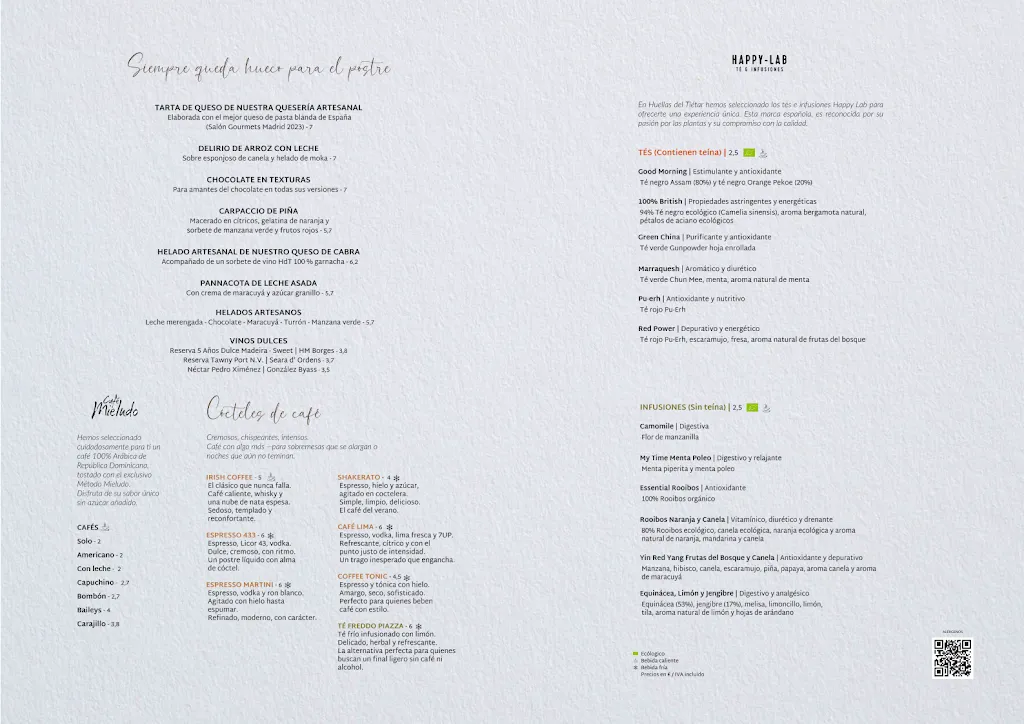 Siempre queda hueco para el postre
TARTA DE QUESO DE NUESTRA QUESERÍA ARTESANAL
Elaborada con el mejor queso de pasta blanda de España
(Salón Gourmets Madrid 2023) - 7
DELIRIO DE ARROZ CON LECHE
Sobre esponjoso de canela y helado de moka - 7
CHOCOLATE EN TEXTURAS
Para amantes del chocolate en todas sus versiones - 7
CARPACCIO DE PIÑA
Macerado en cítricos, gelatina de naranja y
sorbete de manzana verde y frutos rojos - 5,7
HELADO ARTESANAL DE NUESTRO QUESO DE CABRA
Acompañado de un sorbete de vino HdT 100 % garnacha - 6,2
PANNACOTA DE LECHE ASADA
Con crema de maracuyá y azúcar granillo - 5,7
HELADOS ARTESANOS
Leche merengada - Chocolate - Maracuyá - Turrón - Manzana verde - 5,7
VINOS DULCES
Reserva 5 Años Dulce Madeira - Sweet | HM Borges - 3,8
Reserva Tawny Port N.V. | Seara d' Ordens - 3,7
Néctar Pedro Ximénez | González Byass - 3,5
Café
Mieludo
Hemos seleccionado
cuidadosamente para ti un
café 100% Arábica de
República Dominicana,
tostado con el exclusivo
Método Mieludo.
Disfruta de su sabor único
sin azúcar añadido.
CAFÉS
Solo - 2
Americano - 2
Con leche - 2
Capuchino - 2,7
Bombón - 2,7
Baileys - 4
Carajillo - 3,8
Cócteles de café
Cremosos, chispeantes, intensos.
Café con algo más —para sobremesas que se alargan o
noches que aún no terminan.
IRISH COFFEE - 5
El clásico que nunca falla.
Café caliente, whisky y
una nube de nata espesa.
Sedoso, templado y
reconfortante.
ESPRESSO 433 - 6
Espresso, Licor 43, vodka.
Dulce, cremoso, con ritmo.
Un postre líquido con alma
de cóctel.
ESPRESSO MARTINI - 6
Espresso, vodka y ron blanco.
Agitado con hielo hasta
espumar.
Refinado, moderno, con carácter.
SHAKERATO - 4
Espresso, hielo y azúcar,
agitado en coctelera.
Simple, limpio, delicioso.
El café del verano.
CAFÉ LIMA - 6
Espresso, vodka, lima fresca y 7UP.
Refrescante, cítrico y con el
punto justo de intensidad.
Un trago inesperado que engancha.
COFFEE TONIC - 4,5
Espresso y tónica con hielo.
Amargo, seco, sofisticado.
Perfecto para quienes beben
café con estilo.
TÉ FREDDO PIAZZA - 6
Té frío infusionado con limón.
Delicado, herbal y refrescante.
La alternativa perfecta para quienes
buscan un final ligero sin café ni
alcohol.
HAPPY-LAB
TÉ & INFUSIONES
En Huellas del Tiétar hemos seleccionado los tés e infusiones Happy Lab para
ofrecerte una experiencia única. Esta marca española, es reconocida por su
pasión por las plantas y su compromiso con la calidad.
TÉS (Contienen teína) | 2,5
Good Morning | Estimulante y antioxidante
Té negro Assam (80%) y té negro Orange Pekoe (20%)
100% British | Propiedades astringentes y energéticas
94% Té negro ecológico (Camelia sinensis), aroma bergamota natural,
pétalos de aciano ecológicos
Green China | Purificante y antioxidante
Té verde Gunpowder hoja enrollada
Marraquesh | Aromático y diurético
Té verde Chun Mee, menta, aroma natural de menta
Pu-erh | Antioxidante y nutritivo
Té rojo Pu-Erh
Red Power | Depurativo y energético
Té rojo Pu-Erh, escaramujo, fresa, aroma natural de frutas del bosque
INFUSIONES (Sin teína) | 2,5
Camomile | Digestiva
Flor de manzanilla
My Time Menta Poleo | Digestivo y relajante
Menta piperita y menta poleo
Essential Rooibos | Antioxidante
100% Rooibos orgánico
Rooibos Naranja y Canela | Vitamínico, diurético y drenante
80% Rooibos ecológico, canela ecológica, naranja ecológica y aroma
natural de naranja, mandarina y canela
Yin Red Yang Frutas del Bosque y Canela | Antioxidante y depurativo
Manzana, hibisco, canela, escaramujo, piña, papaya, aroma canela y aroma
de maracuyá
Equinácea, Limón y Jengibre | Digestivo y analgésico
Equinácea (53%), jengibre (17%), melisa, limoncillo, limón,
tila, aroma natural de limón y hojas de arándano
Ecólogico
Bebida caliente
Bebida fría
Precios en € / IVA incluido
ALÉRGENOS